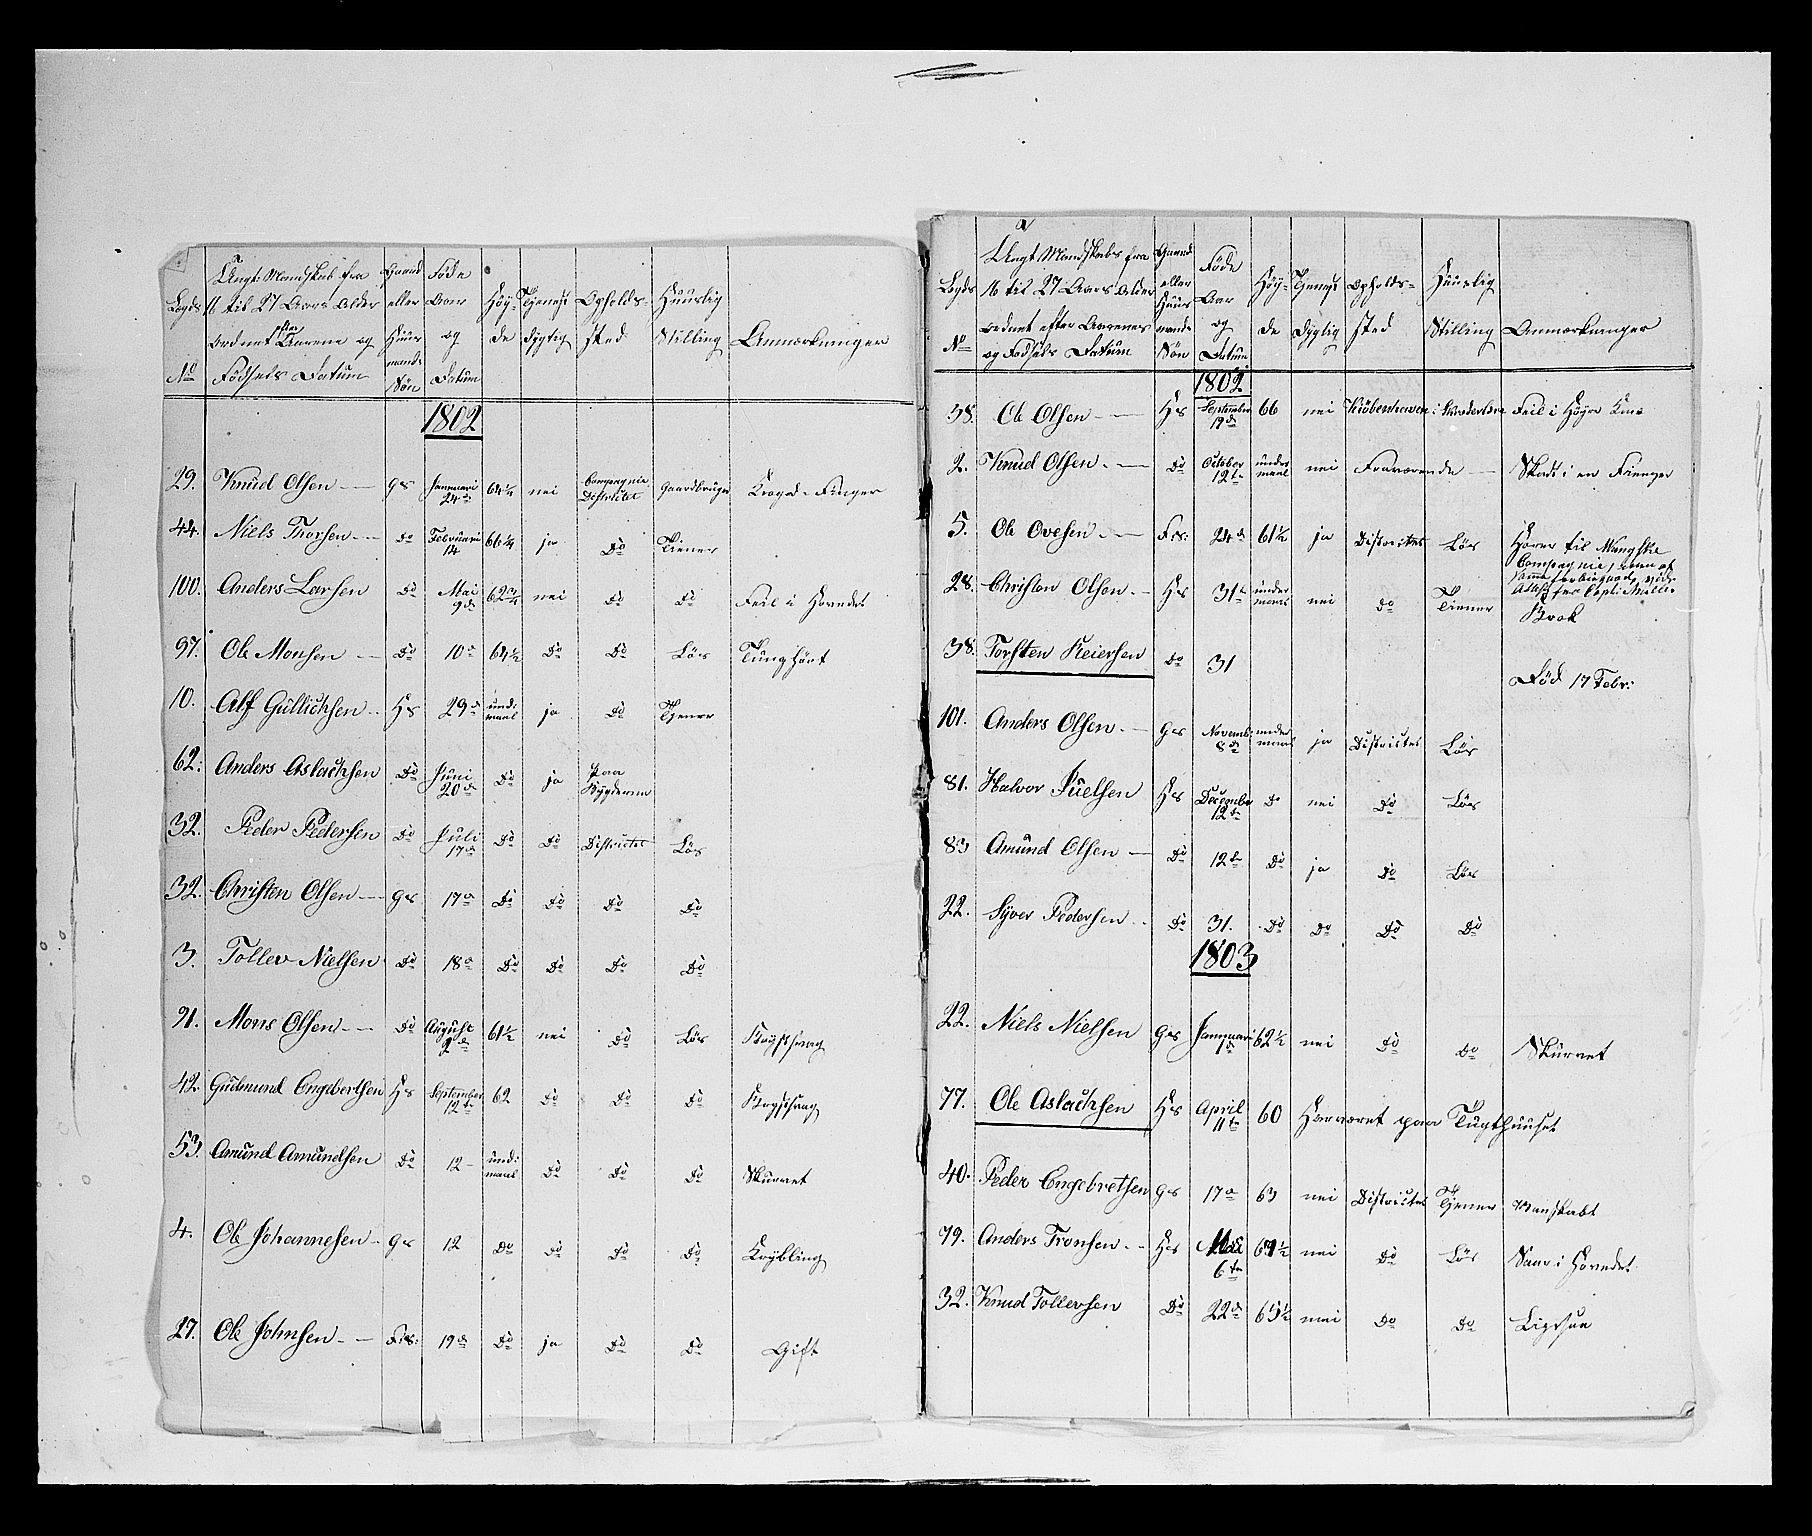 Lægds No | Ungt Mandskab fra 16 til 27 Aars Alder ordnet efter Aarene og Födsels Datum | Gaard eller Huus mands Sön | Föde Aar og Datum | Höy-de | Tjenest dygtig | Opholds-sted | Huuslig Stilling | Anmærkninger
1802
29. Knud Olsen | Gs | Januari 24de | 64¼ | nei | Compagnie Distritet | Gaardbruger | Finger
44. Niels Thorsen | Do | Februari 14 | 66¼ | ja | Do | Tiener
100. Anders Larsen | Do | Mai 9de | 62¾ | nei | Do | Do | Feil i Hovedet
97. Ole Monsen | Do | 10de | 64½ | Do | Do | Lös | Tunghört
10. Alf Gullichsen | Hs | 29de | und: maal | ja | Do | Tjener
62. Anders Aslachsen | Do | Juni 20de | Do | ja | paa Bygderne
32. Peder Pedersen | Do | Juli 17de | Do | Do | Distritet | Lös
32. Christen Olsen | Gs | 17de | Do | Do | Do | Do
3. Tollev Nielsen | Do | 18de | Do | Do | Do | Do
91. Mons Olsen | Do | August 2de | 61½ | nei | Do | Lös | Brystsvag
42. Gudmund Engebertsen | Hs | September 12te | 62 | Do | Do | Do | Brystsvag
53. Amund Amundsen | Do | 12 | und: maal | Do | Do | Do | Skurvet
4. Ole Johannesen | Gs | 12 | Do | Do | Do | Do | Krybling
27. Ole Johnsen | Frs: | 19de | Do | ja | Do | Do | Gift
Lægds No | Ungt Mandskab fra 16 til 27 Aars Alder ordnet efter Aarenes og Födsels Datum | Gaard eller Huus mands Sön | Föde Aar og Datum | Höy-de | Tjenest dygtig | Opholds-sted | Huuslig Stilling | Anmærkninger
1802
58. Ole Olsen | Hs | September 19de | 66 | nei | Kiöbenhavn | Feil i Höyre Knæ
2. Knud Olsen | Do | October 12te | under maal | nei | Fraværende | Skadt i en Finger
5. Ole Ovesen | Frs: | 24de | 61½ | ja | Distrittet | Lös | Hörer til Compagnie
28. Christen Olsen | Hs | 31te | under maal | nei | Do | Tiener | Brok
38. Torsten Reiersen | Do | 31 | Föd 17 Febr:
101. Anders Olsen | Gs | Novemb: 8de | under maal | ja | Distrittet | Lös
81. Halvor Juelsen | Hs | December 12te | Do | nei | Do | Lös
83 Amund Olsen | Do | 12te | Do | ja | Do | Lös
22. Syver Pedersen | Do | 31. | Do | Do | Do | Do
1803
22. Niels Nielsen | Gs | Januari 1de | 62½ | nei | Do | Do | Skurvet
77. Ole Aslachsen | Hs | April 11te | 60 | Har været paa Tugthuuset
40. Peder Engebretsen | Gs | 17de | 63 | nei | Distrittet | Tjener | Vanskabt
79. Anders Tronsen | Hs | Mai 6te | 61½ | nei | Do | Lös | Saar i Hovedet
32. Knud Tollevsen | Do | 22de | 65½ | nei | Do | Do